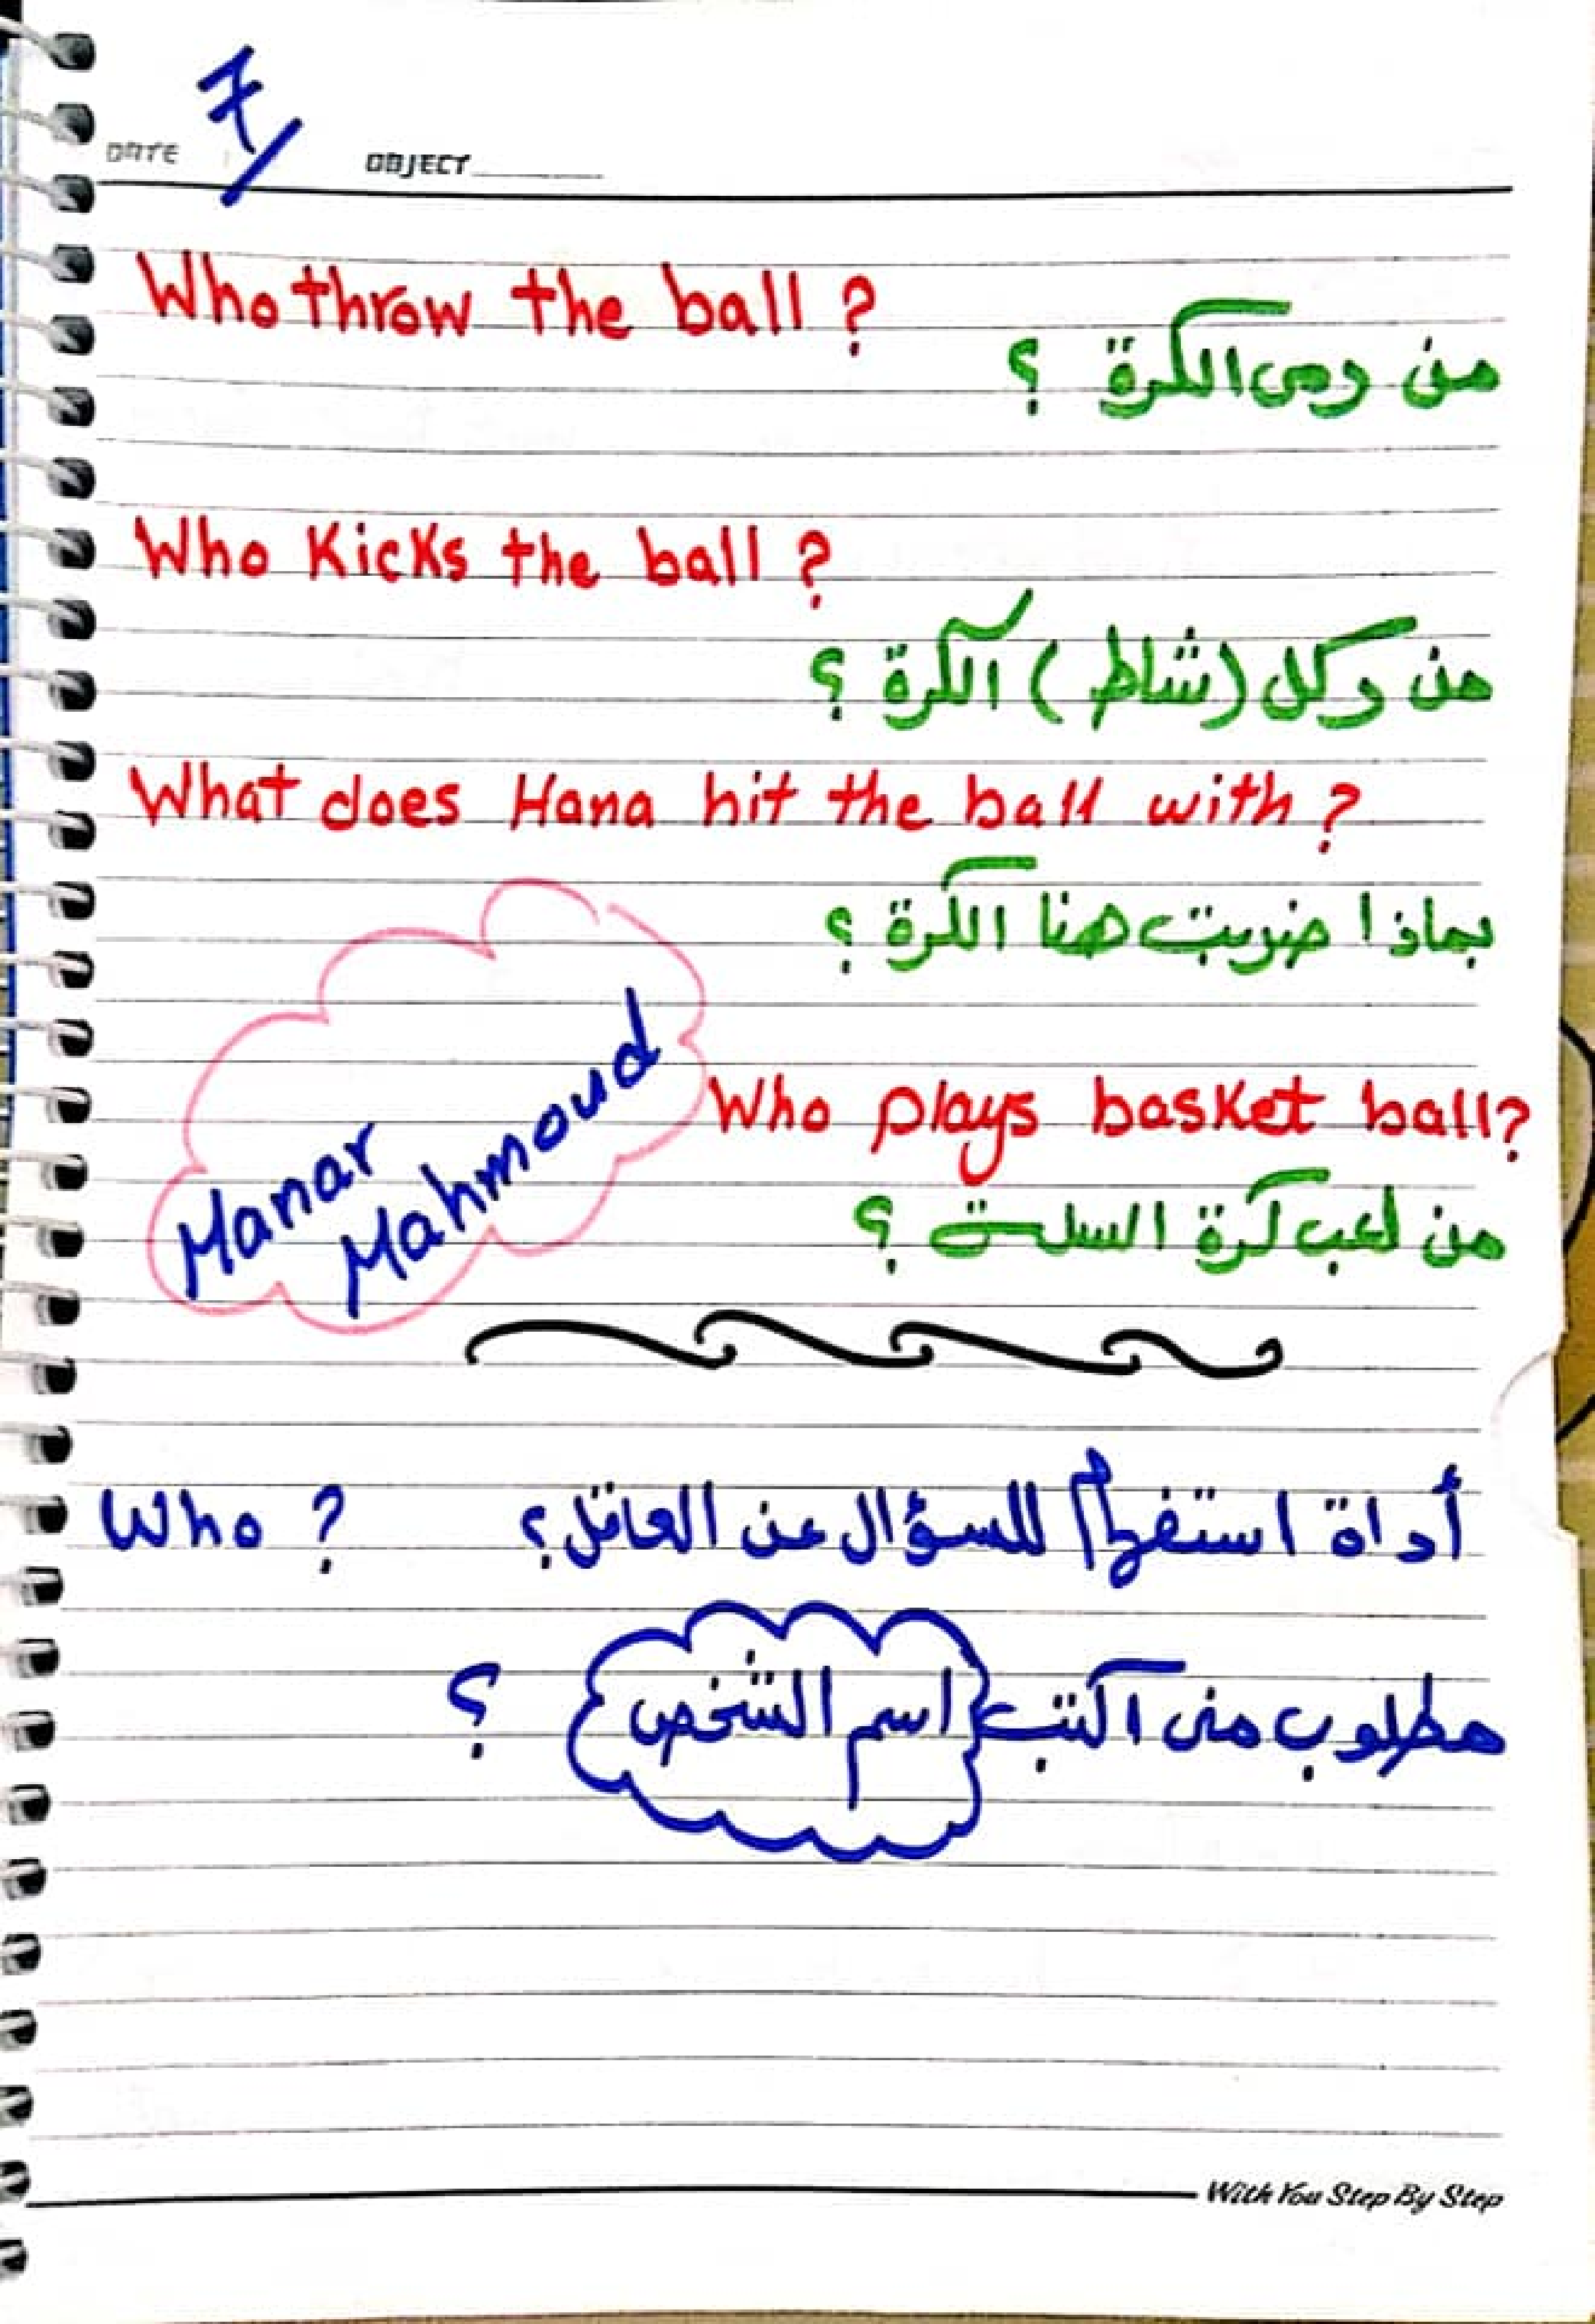 7/
DATE OBJECT
Who throw the ball ?
من رمى الكرة ؟
Who Kicks the ball ?
من ركل (شاط) الكرة ؟
What does Hana hit the ball with ?
بماذا ضربت هنا الكرة ؟
Manar
Mahmoud
Who plays basket ball?
من لعب كرة السلة ؟
Who ? أداة استفهام للسؤال عن العاقل ؟
مطلوب منى اكتب اسم الشخص ؟
With You Step By Step